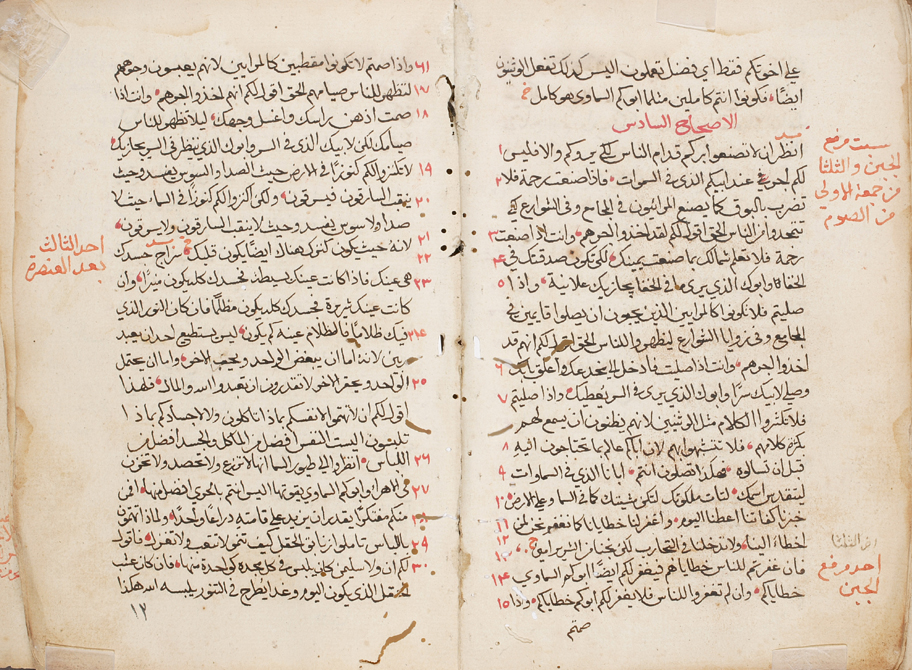 على اخوتكم فقط اي فضل تعملون اليس كذلك تفعل الوثنيون
ايضًا فكونوا انتم كاملين مثلما ابوكم السماوي هو كامل
الاصحاح السادس
انظروا ان لا تصنعوا بركم قدام الناس لكي يروكم والا فليس
لكم اجر عند ابيكم الذي في السموات فاذا صنعت رحمة فلا
تضرب بالبوق كما يصنع المراؤون في المجامع وفي الشوارع لكي
يتمجدوا من الناس الحق اقول لكم لقد اخذوا اجرهم وانت اذا صنعت
رحمة فلا تعلم شمالك بما صنعت يمينك لكي تكون صدقتك في
الخفا وابوك الذي يرى في الخفا يجازيك علانية واذا
صليتم فلا تكونوا كالمرايين الذين يحبون ان يصلوا قايمين في
المجامع وفي زوايا الشوارع ليظهروا للناس الحق اقول لكم انهم قد
اخذوا اجرهم وانت اذا صليت فادخل الى مخدعك واغلق بابك
وصلي لابيك سرًا وابوك الذي يرى في السر يعطيك واذا صليتم
فلا تكثروا الكلام مثل الوثنيين لانهم يظنون ان يسمع لهم
بكثرة كلامهم فلا تتشبهوا بهم لان اباكم عالم بما تحتاجون اليه
قبل ان تسالوه فهكذا تصلون انتم ابانا الذي في السماوات
ليتقدس اسمك لتات ملكوتك لتكن مشيتك كما في السما وعلى الارض
خبزنا كفاتنا اعطنا اليوم واغفر لنا خطايانا كما نغفر نحن لمن
اخطا الينا ولا تدخلنا في التجارب لكن نجنا من الشرير امين
فان غفرتم للناس خطاياهم فيغفر لكم ايضًا ابوكم السماوي
خطاياكم وان لم تغفروا للناس فلا يغفر لكم ابوكم خطاياكم واذا
صمتم
سبت مرفع
الجبن والثلثا
من جمعة الاولى
من الصوم
احد مرفع
الجبن
١٦ واذا صمتم لا تكونوا مقطبين كالمرايين لانهم يعبسون وجوههم
١٧ ليظهروا للناس صيامهم الحق اقول لكم انهم اخذوا اجرهم وانت اذا
١٨ صمت ادهن راسك واغسل وجهك ليلا تظهر للناس
صيامك لكن لابيك الذي في السر وابوك الذي ينظر في السر يجازيك
١٩ لا تكنزوا لكم كنوزًا في الارض حيث الصدا والسوس يفسد وحيث
٢٠ ينقب السارقون فيسرقون لكن اكنزوا لكم كنوزًا في السماء حيث لا
صدا ولا سوس يفسد وحيث لا ينقب السارقون ولا يسرقون
٢١ لانه حيث يكون كنزك هناك ايضًا يكون قلبك
٢٢ سراج جسدك
٢٣ هي عينك فاذا كانت عينك بسيطة فجسدك كله يكون نيرًا وان
كانت عينك شريرة فجسدك كله يكون مظلمًا فان كان النور الذي
٢٤ فيك ظلامًا فالظلام عينه كم يكون ليس يستطيع احد ان يعبد
ربين لانه اما ان يبغض الواحد ويحب الاخر واما ان يحتمل
٢٥ الواحد ويحقر الاخر لا تقدرون ان تعبدوا الله والمال فلهذا
اقول لكم ان لا تهتموا لانفسكم بماذا تاكلون ولا لاجسادكم بماذا
تلبسون اليست النفس افضل من الماكل والجسد افضل من
٢٦ اللباس انظروا الى طيور السما انها لا تزرع ولا تحصد ولا تخزن
٢٧ في الاهرا وابوكم السماوي يقوتها اليس انتم بالحري افضل منها فمن
منكم مفتكرًا يقدر ان يزيد على قامته ذراعًا واحدًا ولماذا تهتمون
٢٩ باللباس تاملوا زنابق الحقل كيف تنمو لا تتعب ولا تغزل فاقول
٣٠ لكم ان ولا سليمن كان يلبس في كل مجده كواحدة منها فان كان عشب
الحقل الذي يكون اليوم وغدا يطرح في التنور يلبسه الله هكذا
١٢
احد الثالث
بعد العنصرة